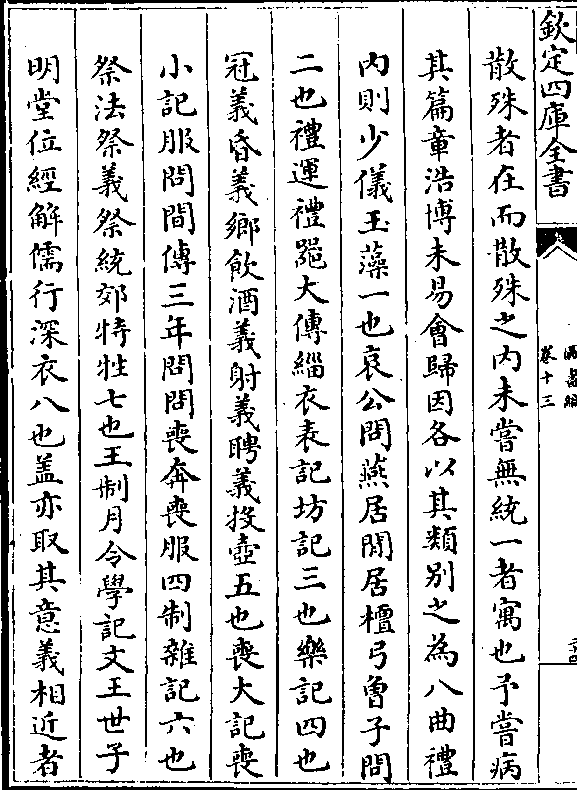 欽定四庫全書
卷十三
散殊者在而散殊之内未嘗無統一者寓也予嘗病
其篇章浩博未易會歸因各以其類别之為八曲禮
内則少儀玉藻一也哀公問燕居閒居檀弓曾子問
二也禮運禮噐大傳緇衣表記坊記三也樂記四也
冠義昏義鄉飲酒義射義聘義投壺五也喪大記喪
小記服問間傳三年問問喪奔喪服四制雜記六也
祭法祭義祭統郊特牲七也王制月令學記文王世子
明堂位經解儒行深衣八也盖亦取其意義相近者